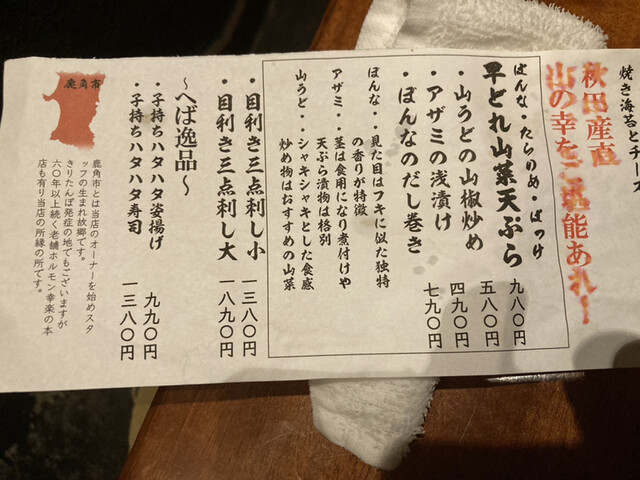 焼き海苔とチーズ
秋田産直
山の幸をご堪能あれ！
ぼんな・たらのめ・ばっけ
早どれ山菜天ぷら 九八〇円
・山うどの山椒炒め 五八〇円
・アザミの浅漬け 四九〇円
・ぼんなのだし巻き 七九〇円
ぼんな・・見た目はフキに似た独特
の香りが特徴
アザミ・・茎は食用になり煮付けや
天ぷら漬物は格別
山うど・・シャキシャキとした食感
炒め物はおすすめの山菜
・目利き三点刺し小 一三八〇円
・目利き三点刺し大 一八九〇円
〜へば逸品〜
・子持ちハタハタ姿揚げ 九九〇円
・子持ちハタハタ寿司 一三八〇円
鹿角市
鹿角市とは当店のオーナーを始めスタ
ッフの生まれ故郷です。
きりたんぽ発症の地でもございますが
六〇年以上続く老舗ホルモン幸楽の本
店も有り当店の所縁の所です。